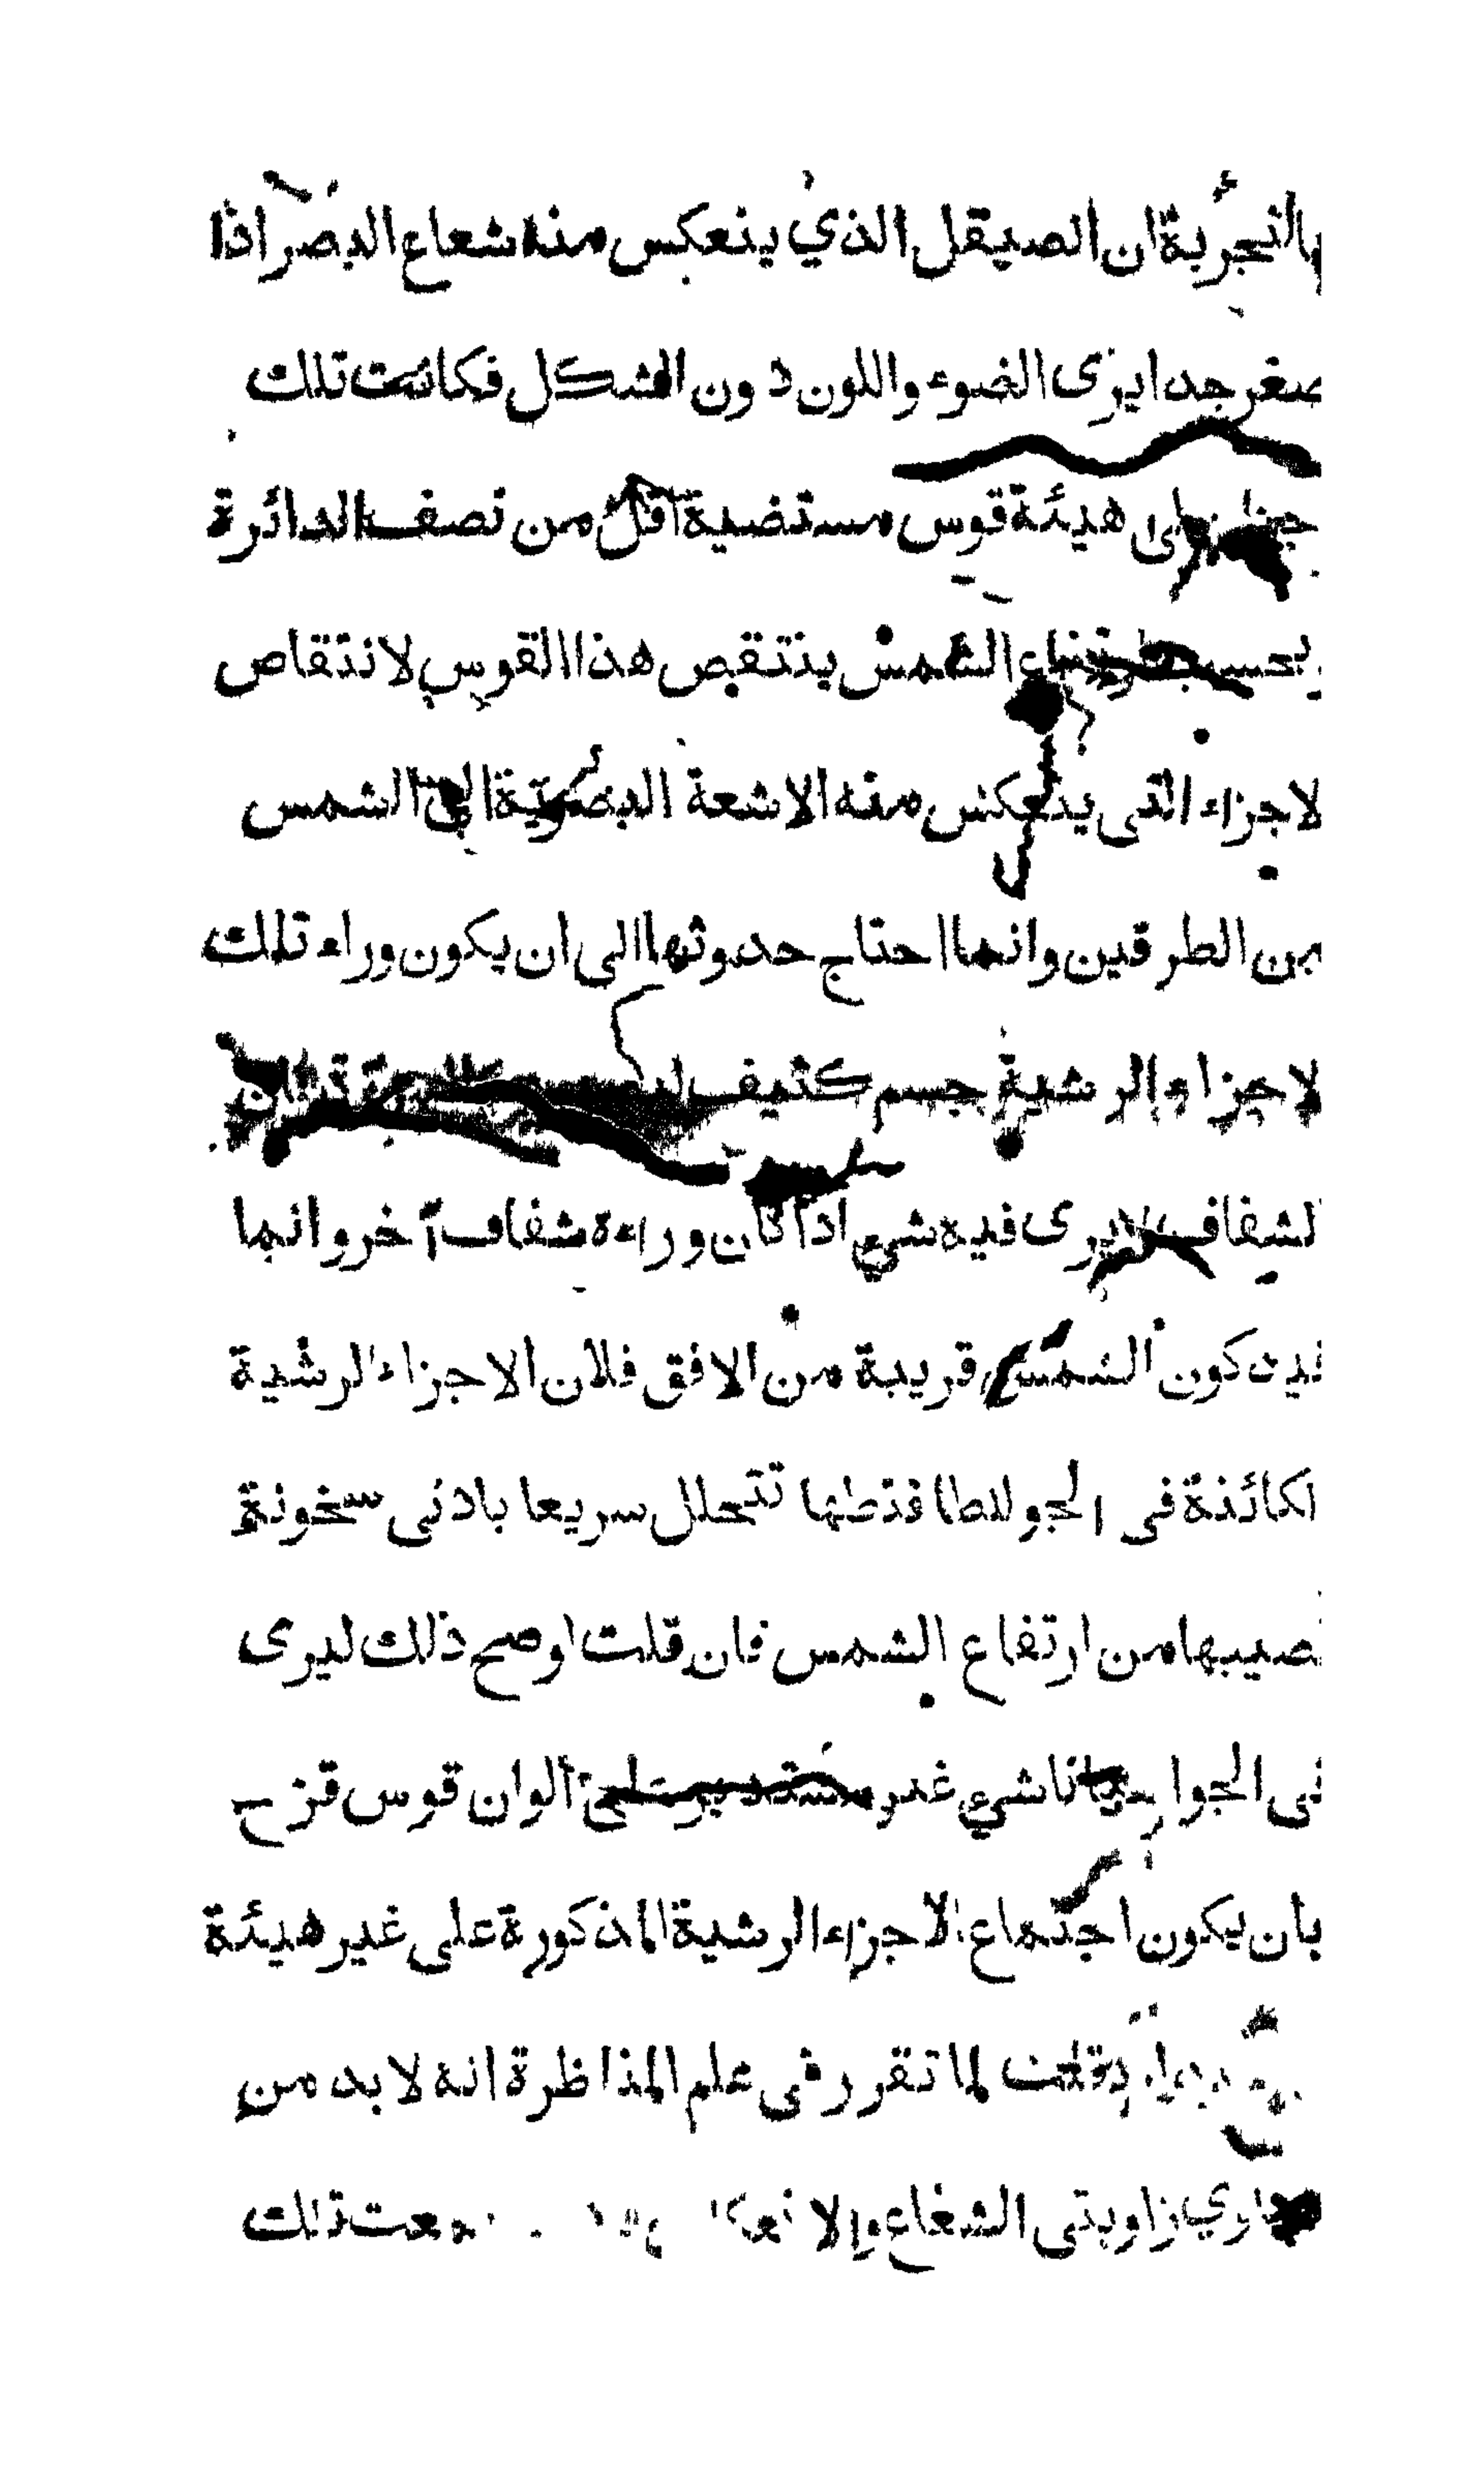 بالتجربة ان الصيقل الذي ينعكس منه شعاع البصر اذا
صغر جدا يرى الضوء واللون دون الشكل فكانت تلك
على هيئة قوس مستضية اقل من نصف الدائرة
الشمس ينتقص هذا القوس لانتقاص
لاجزاء التى ينعكس منه الاشعة البصرية الى الشمس
من الطرفين وانما احتاج حدوثها الى ان يكون وراء تلك
لاجزاء الرشية جسم كثيف
لشفاف لا يرى فيه شيء اذا كان وراءه شفاف آخر وانما
كون الشمس قريبة من الافق فلان الاجزاء الرشية
لكائنة فى الجو تتحلل سريعا بادنى سخونة
تصيبها من ارتفاع الشمس فان قلت اوضح ذلك ليرى
فى الجو احيانا شيء غير مستدير على ألوان قوس قزح
بان يكون اجتماع الاجزاء الرشية المذكورة على غير هيئة
قلت لما تقرر فى علم المناظرة انه لا بد من
زاويتى الشعاع والا